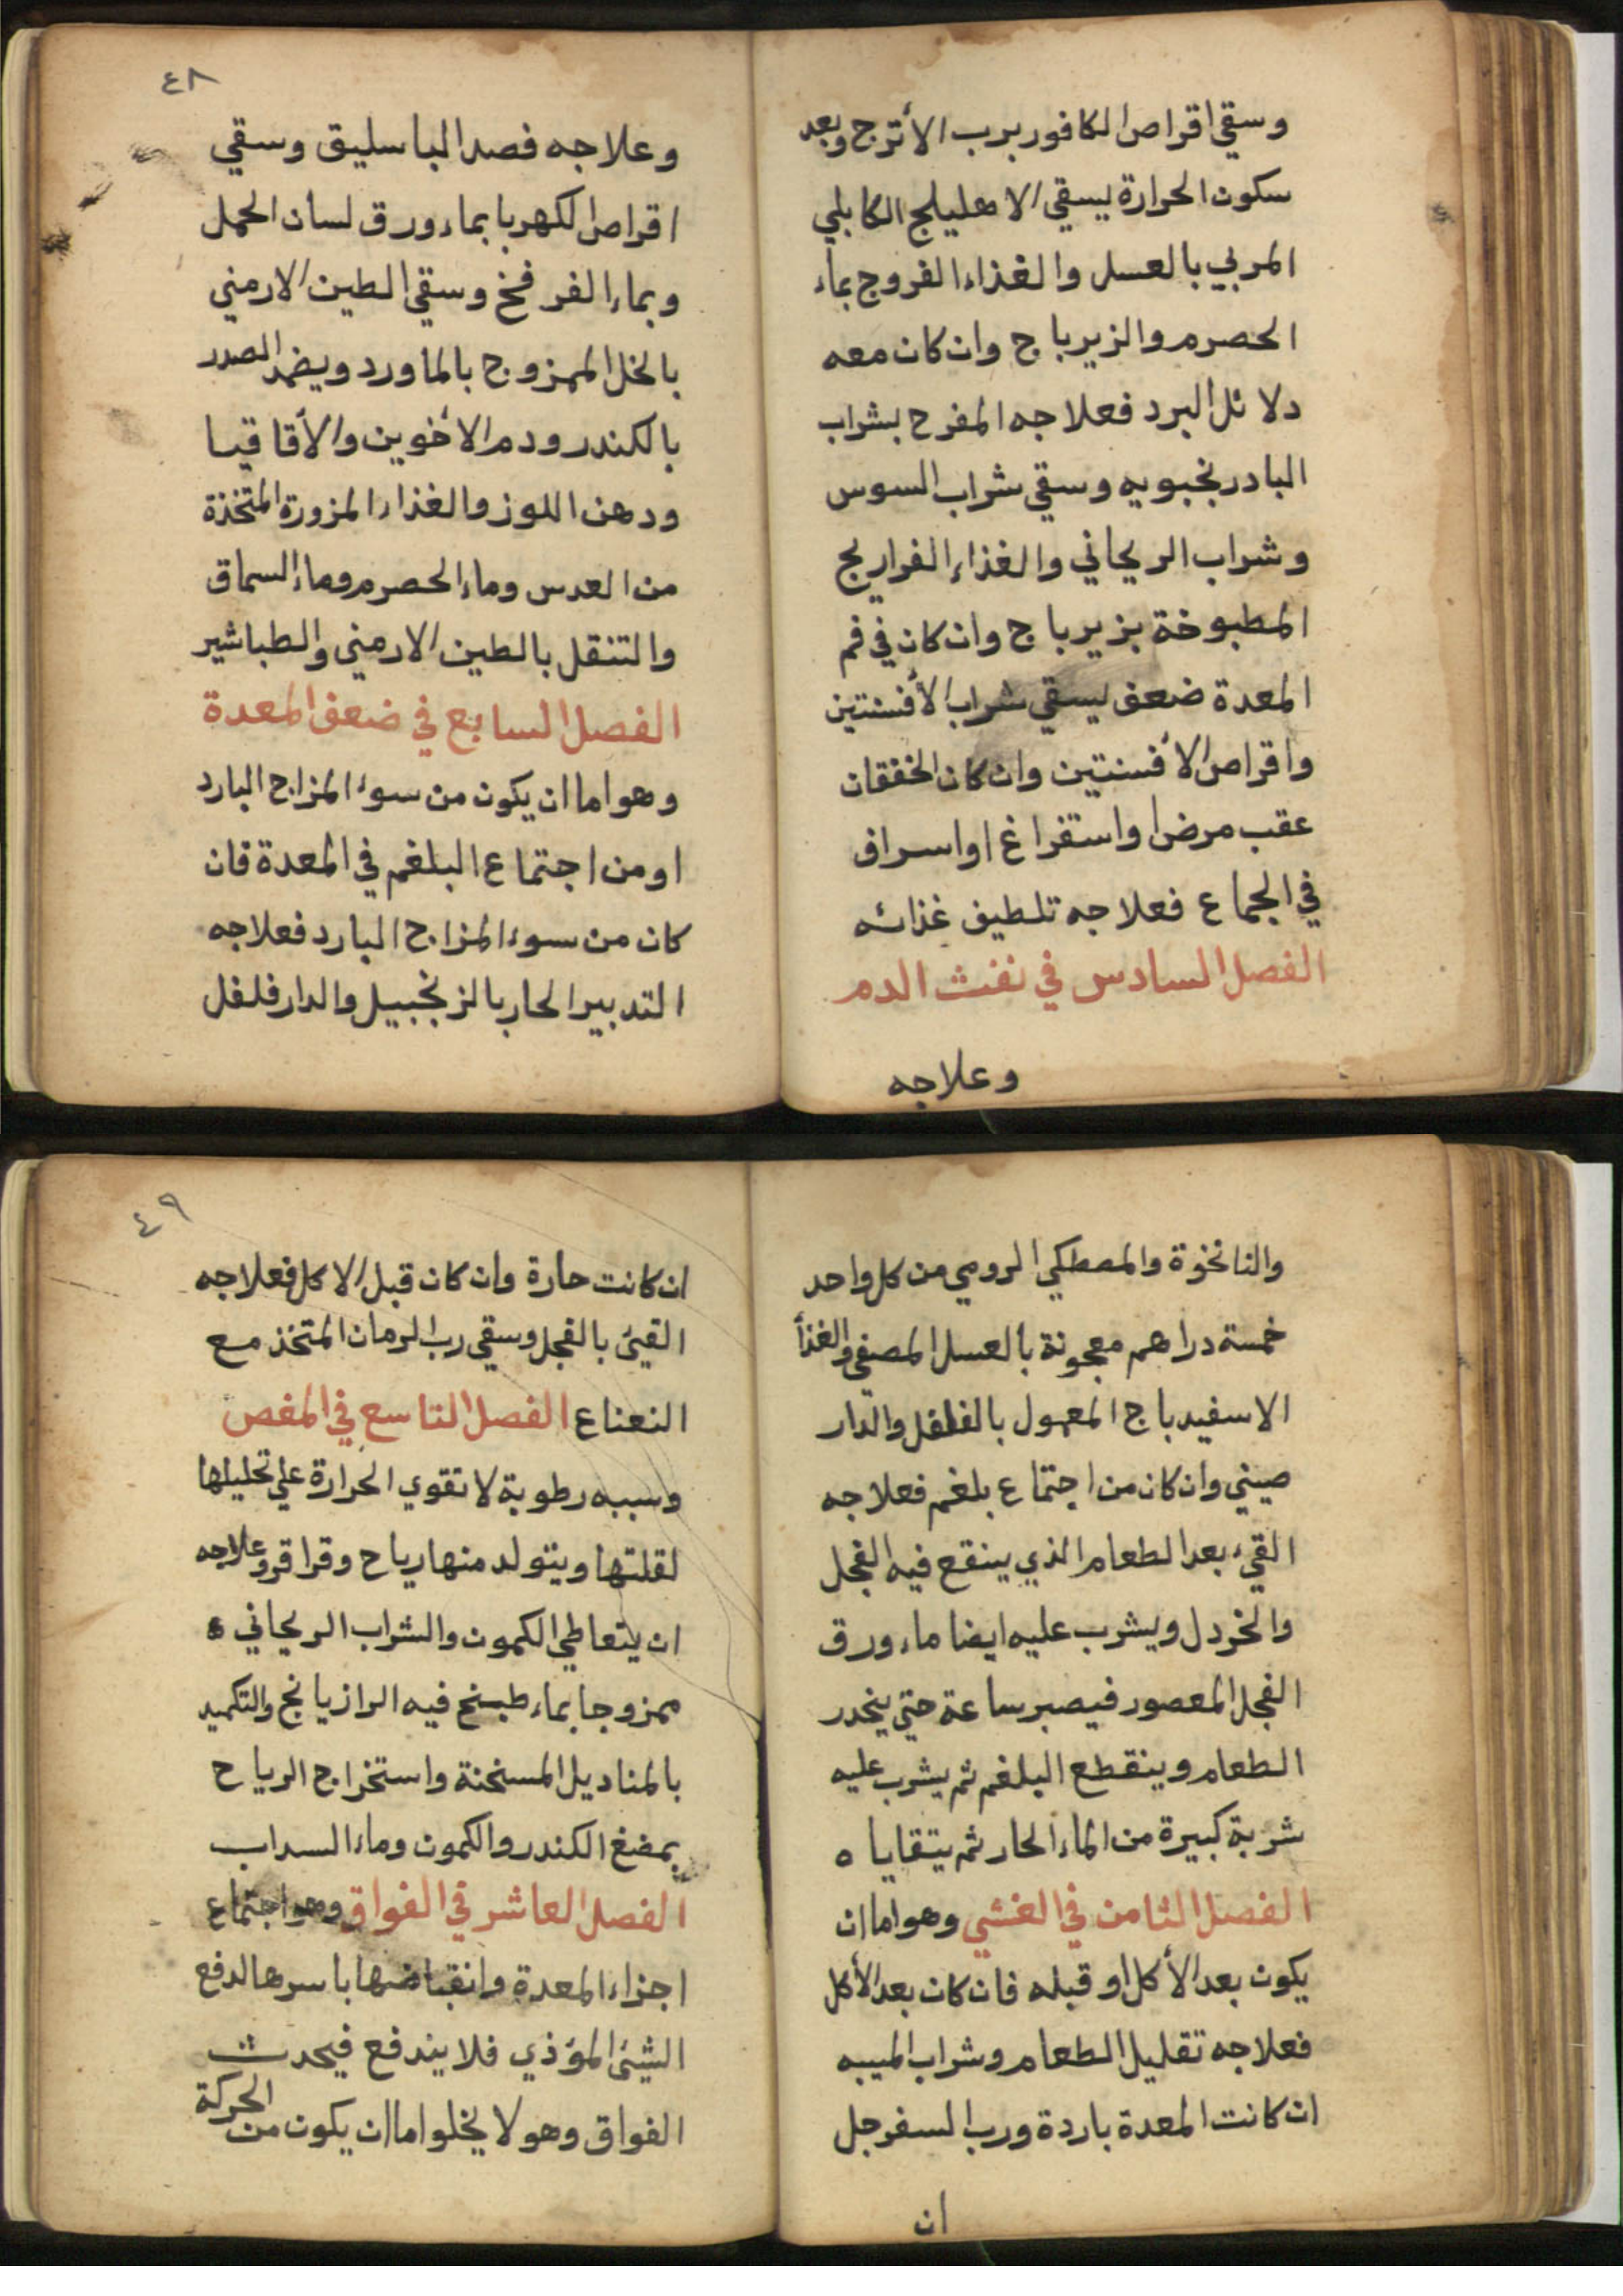 وسقي اقراص الكافور برب الأترج وبعد
سكون الحرارة يسقي الاهليلج الكابلي
المربي بالعسل والغذاء الفروج بماء
الحصرم والزيرباج وان كان معه
دلائل البرد فعلاجه المفرح بشراب
البادرنجبويه وسقي شراب السوس
وشراب الريحاني والغذاء الفراريج
المطبوخة بزيرباج وان كان في فم
المعدة ضعف يسقي شراب الأفسنتين
واقراص الأفسنتين وان كان الخفقان
عقب مرض او استفراغ او اسراف
في الجماع فعلاجه تلطيف غذائه
الفصل السادس في نفث الدم
وعلاجه
٤٨
وعلاجه فصد الباسليق وسقي
اقراص الكهربا بماء ورق لسان الحمل
وبماء الفرفخ وسقي الطين الارمني
بالخل الممزوج بالماورد ويضمد الصدر
بالكندر ودم الأخوين والأقاقيا
ودهن اللوز والغذاء المزورة المتخذة
من العدس وماء الحصرم وماء السماق
والتنقل بالطين الارمني والطباشير
الفصل السابع في ضعف المعدة
وهو اما ان يكون من سوء المزاج البارد
او من اجتماع البلغم في المعدة فان
كان من سوء المزاج البارد فعلاجه
التدبير الحار بالزنجبيل والدارفلفل
والنانخوة والمصطكي الرومي من كل واحد
خمسة دراهم معجونة بالعسل المصفي والغذأ
الاسفيدباج المعمول بالفلفل والدار
صيني وان كان من اجتماع بلغم فعلاجه
القيء بعد الطعام الذي ينقع فيه الفجل
والخردل ويشرب عليه ايضا ماء ورق
الفجل المعصور فيصبر ساعة حتي ينحدر
الطعام وينقطع البلغم ثم يشرب عليه
شربة كبيرة من الماء الحار ثم يتقاياه
الفصل الثامن في الغشي وهو اما ان
يكون بعد الأكل او قبله فان كان بعد الأكل
فعلاجه تقليل الطعام وشراب الميبه
ان كانت المعدة باردة ورب السفرجل
ان
٤٩
ان كانت حارة وان كان قبل الاكل فعلاجه
القيئ بالفجل وسقي رب الرمان المتخذ مع
النعناع الفصل التاسع في المغص
وسببه رطوبة لا تقوي الحرارة علي تحليلها
لقلتها ويتولد منها رياح وقراقر وعلاجه
ان يتعاطي الكمون والشراب الريحاني
ممزوجا بماء طبخ فيه الرازيانج والتكميد
بالمناديل المسخنة واستخراج الرياح
بمضغ الكندر والكمون وماء السداب
الفصل العاشر في الفواق وهو اجتماع
اجزاء المعدة وانقباضها باسرها لدفع
الشيئ المؤذي فلا يندفع فيحدث
الحركة
الفواق وهو لا يخلوا اما ان يكون من